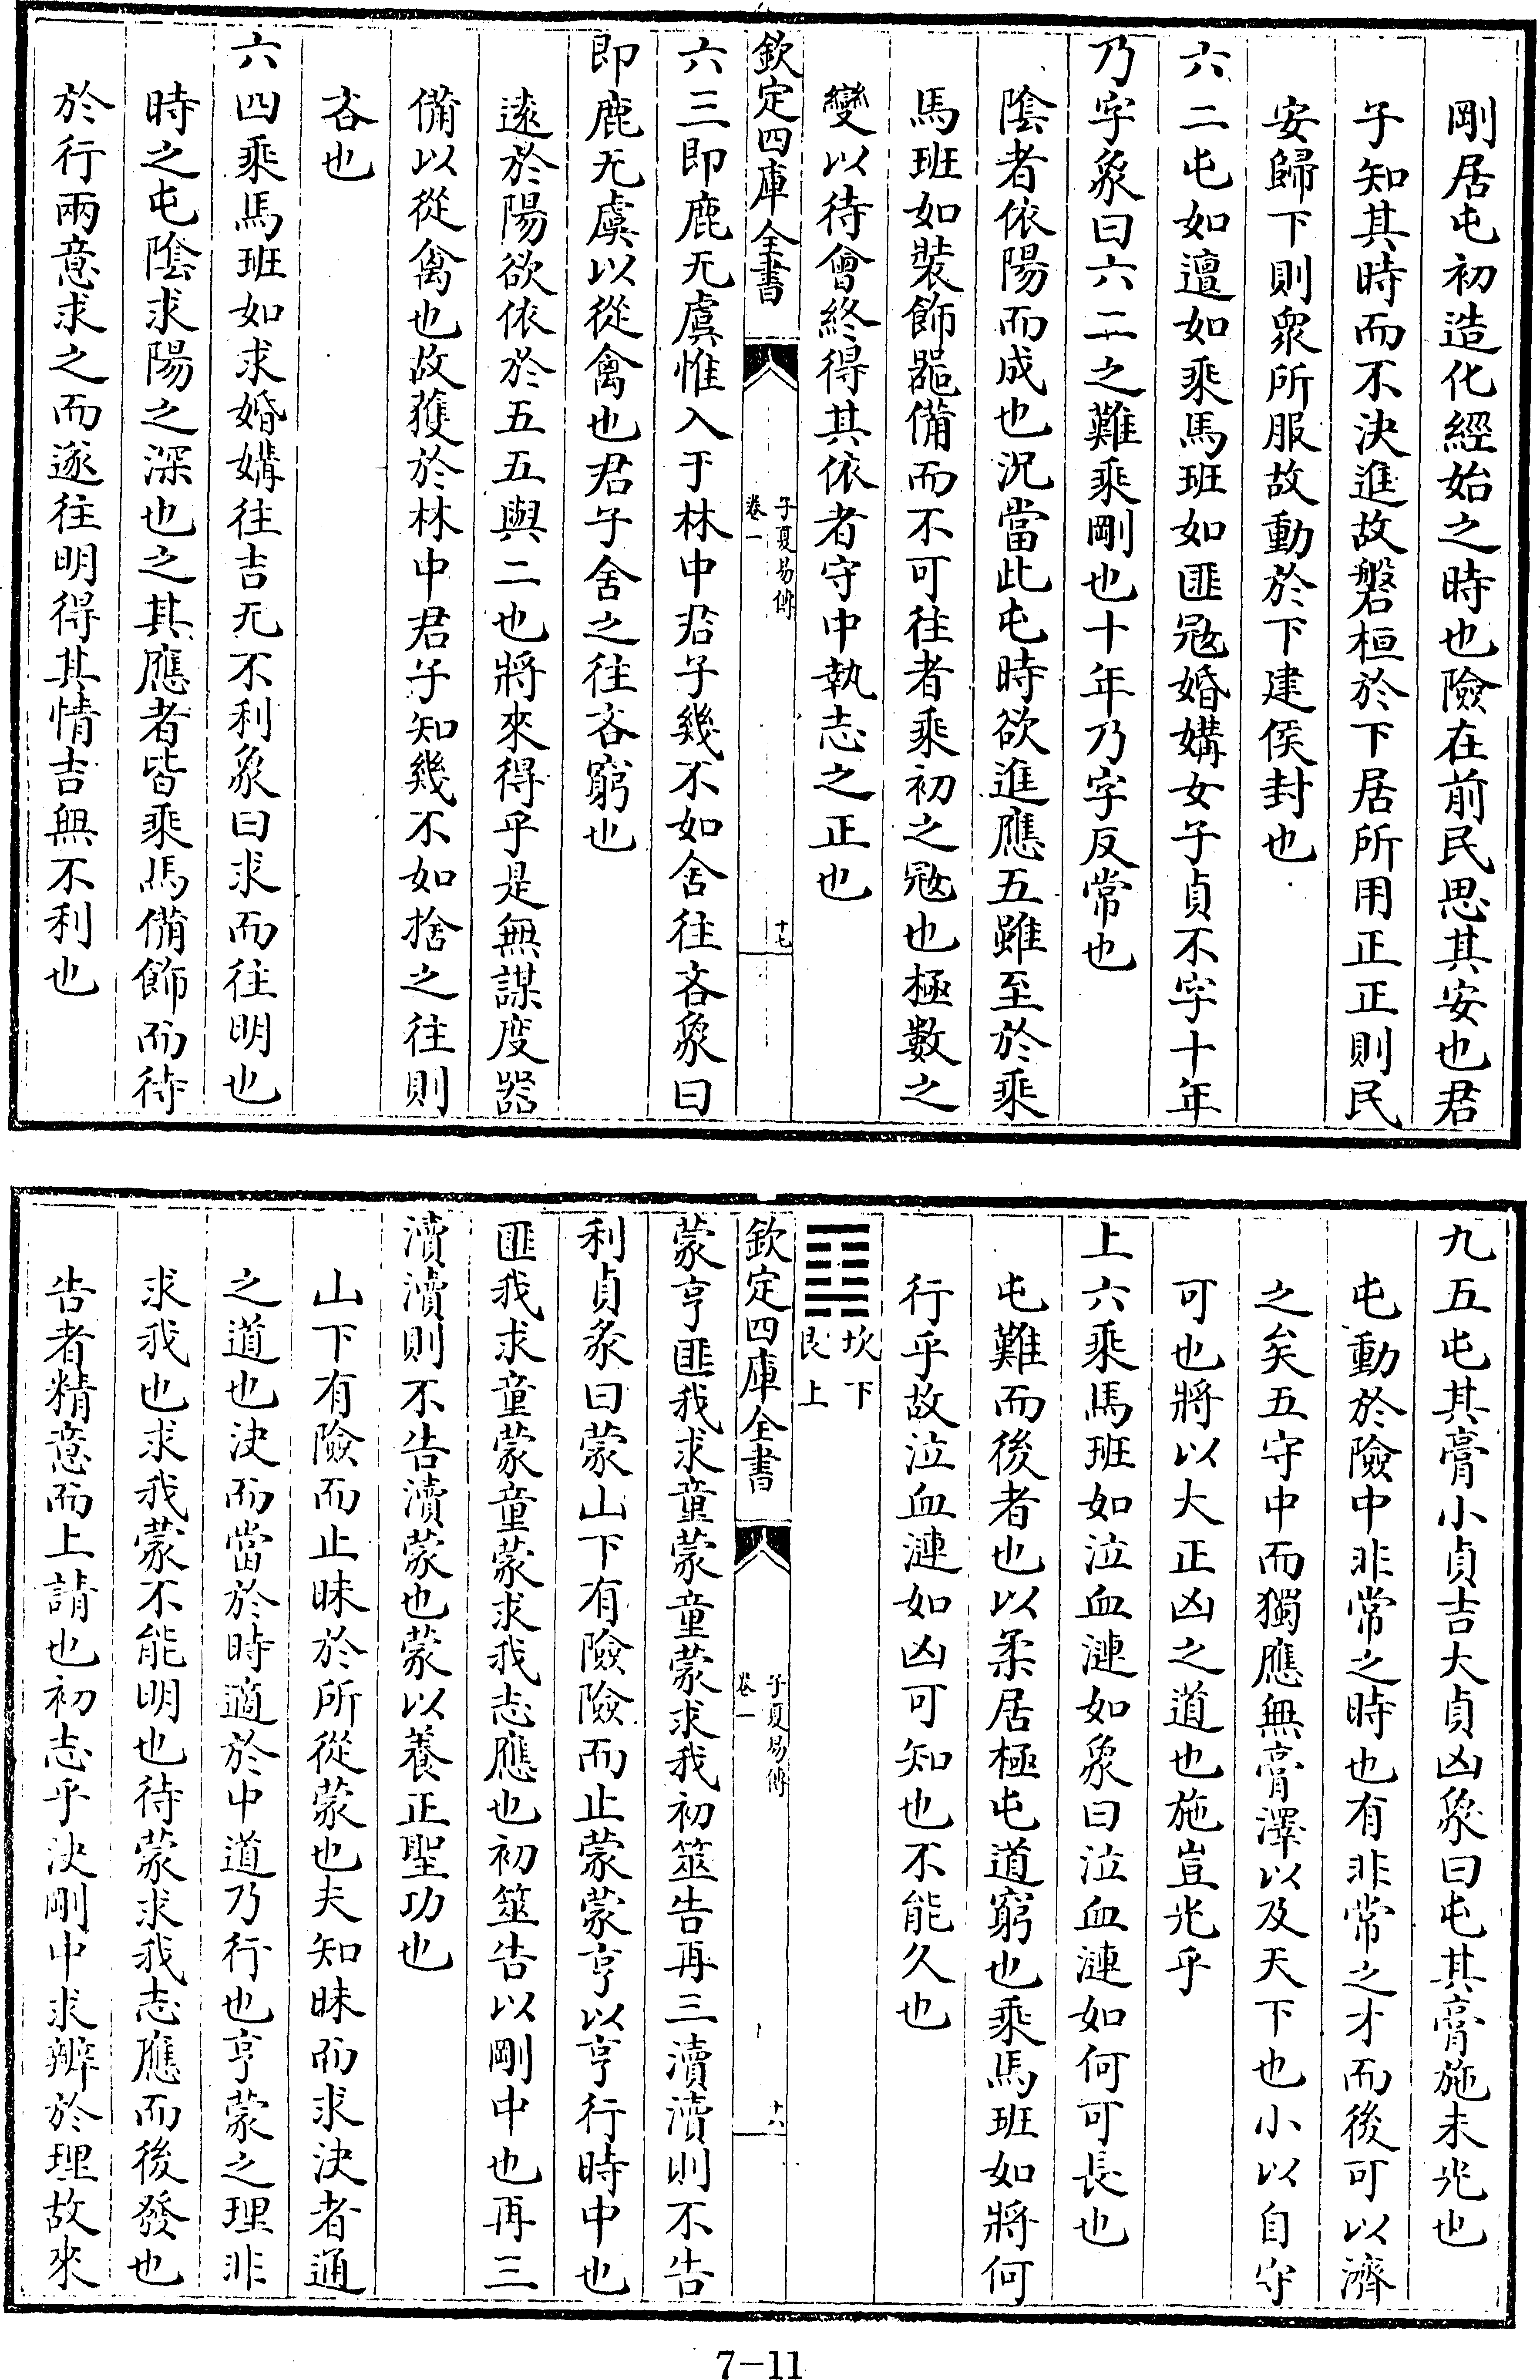 剛居屯初造化經始之時也險在前民思其安也君
子知其時而不決進故磐桓於下居所用正正則民
安歸下則衆所服故動於下建侯封也
六二屯如邅如乘馬班如匪冦婚媾女子貞不字十年
乃字象曰六二之難乘剛也十年乃字反常也
陰者依陽而成也況當此屯時欲進應五雖至於乘
馬班如裝飾噐備而不可往者乘初之冦也極數之
變以待會終得其依者守中執志之正也
欽定四庫全書
子夏易傳
卷一
十七
六三即鹿无虞惟入于林中君子幾不如舍往吝象曰
即鹿无虞以從禽也君子舍之往吝窮也
逺於陽欲依於五五與二也將來得乎是無謀度器
備以從禽也故獲於林中君子知幾不如捨之往則
吝也
六四乘馬班如求婚媾往吉无不利象曰求而往明也
時之屯陰求陽之深也之其應者皆乘馬備飾而待
於行兩意求之而遂往明得其情吉無不利也
九五屯其膏小貞吉大貞凶象曰屯其膏施未光也
屯動於險中非常之時也有非常之才而後可以濟
之矣五守中而獨應無膏澤以及天下也小以自守
可也將以大正凶之道也施豈光乎
上六乘馬班如泣血漣如象曰泣血漣如何可長也
屯難而後者也以柔居極屯道窮也乘馬班如將何
行乎故泣血漣如凶可知也不能久也
坎下
艮上
欽定四庫全書
子夏易傳
卷一
十八
蒙亨匪我求童蒙童蒙求我初筮告再三瀆瀆則不告
利貞彖曰蒙山下有險險而止蒙蒙亨以亨行時中也
匪我求童蒙童蒙求我志應也初筮告以剛中也再三
瀆瀆則不告瀆蒙也蒙以養正聖功也
山下有險而止昧於所從蒙也夫知昧而求決者通
之道也決而當於時適於中道乃行也亨蒙之理非
求我也求我蒙不能明也待蒙求我志應而後發也
告者精意而上請也初志乎決剛中求辨於理故來
7-11